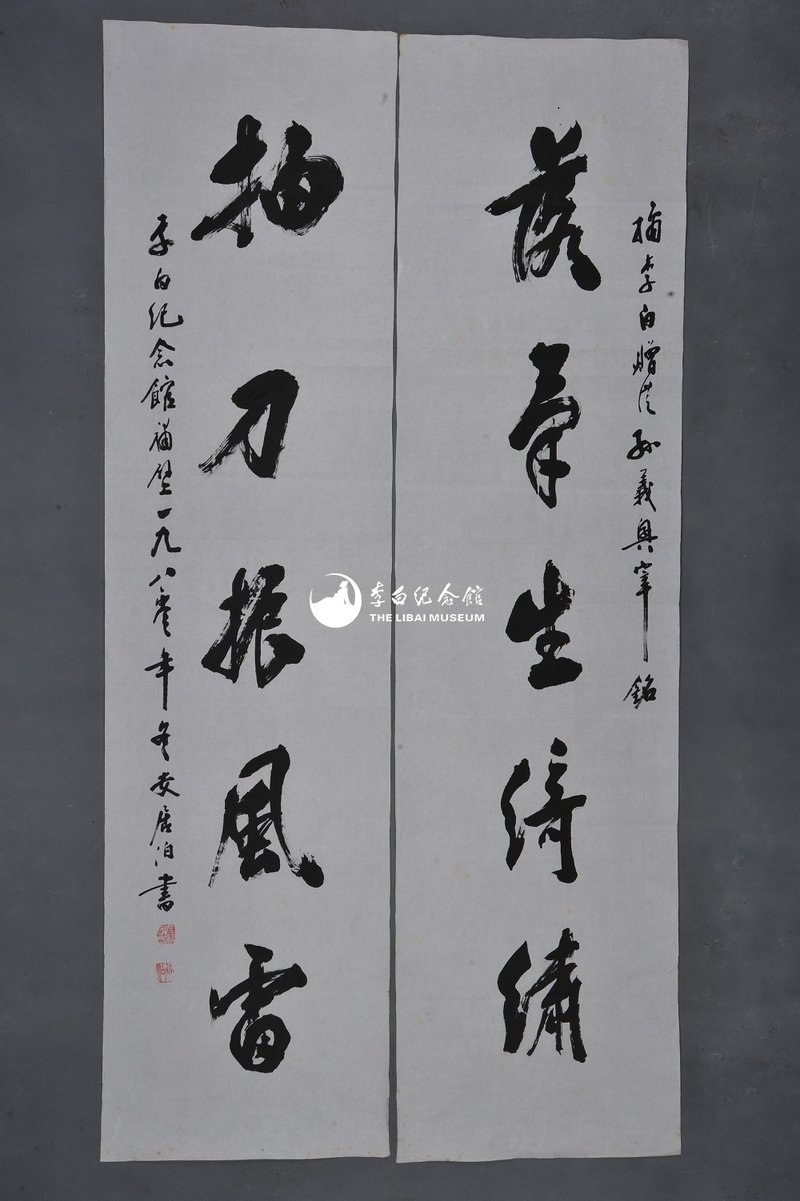 摘李白贈從孫義興宰銘
落筆生綺繡
抽刀振風雷
李白纪念館補壁一九八零年冬居泊書
李白纪念館
THE LIBAI MUSEUM